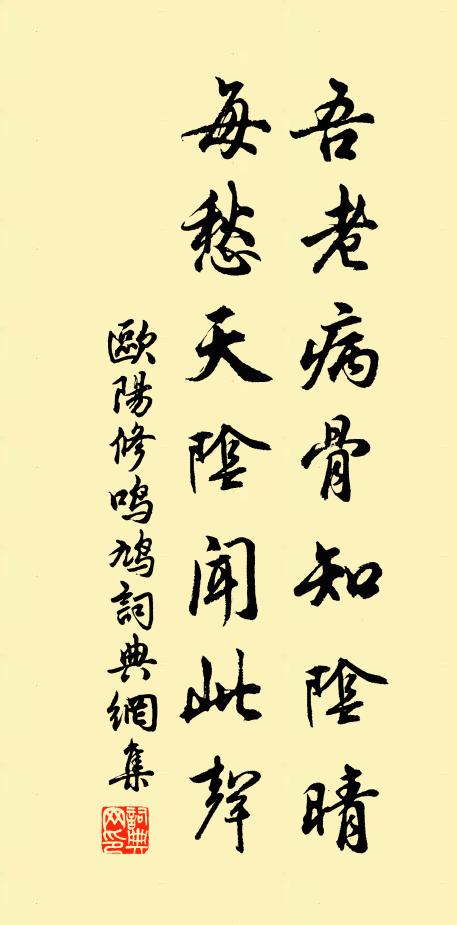 吾老病骨知陰晴
每愁天陰聞此聲
歐陽修鳴鳩詞典網集
詞典網印